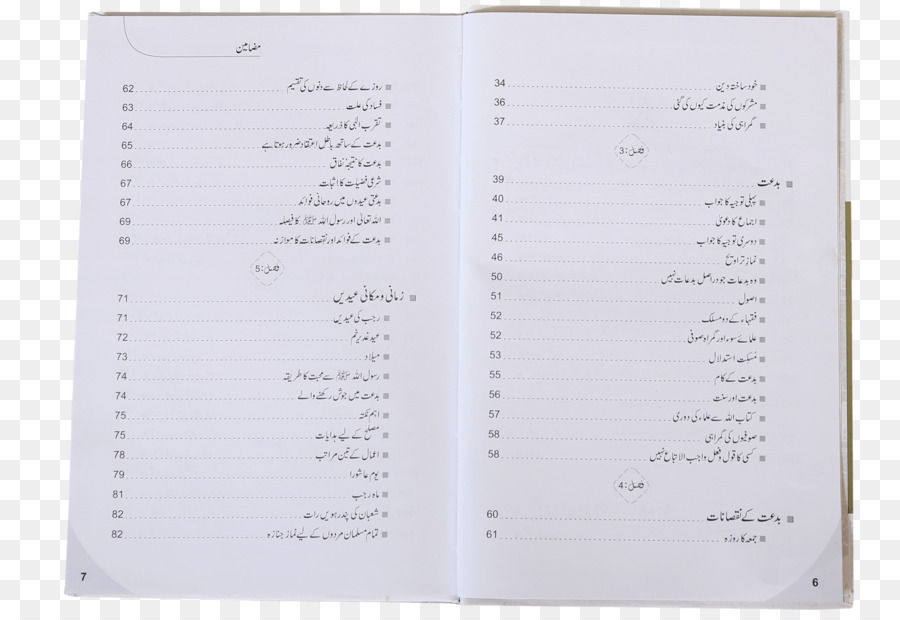 خود ساختہ دین 34
مشرکوں کی مذمت کیوں کی گئی 36
گمراہی کی بنیاد 37
فصل: 3
بدعت 39
پہلی توجیہ کا جواب 40
اجماع کا دعویٰ 41
دوسری توجیہ کا جواب 45
نماز تراویح 46
وہ بدعات جو دراصل بدعات نہیں 50
اصول 51
فقہاء کے دو مسلک 52
علمائے سوء اور گمراہ صوفی 52
مسلک استدلال 53
بدعت کے کام 55
بدعت اور سنت 56
کتاب اللہ سے علماء کی دوری 57
صوفیوں کی گمراہی 58
کسی کا قول و فعل واجب الاتباع نہیں 58
فصل: 4
بدعت کے نقصانات 60
جمعہ کا روزہ 61
6
مضامین
روزے کے لحاظ سے دنوں کی تقسیم 62
فساد کی علت 63
تقرب الٰہی کا ذریعہ 64
بدعت کے ساتھ باطل اعتقاد ضرور ہوتا ہے 65
بدعت کا نتیجہ نفاق 66
شرعی فضیلت کا اثبات 67
بدعتی عیدوں میں روحانی فوائد 67
اللہ تعالیٰ اور رسول اللہ ﷺ کا فیصلہ 69
بدعت کے فوائد اور نقصانات کا موازنہ 69
فصل: 5
زمانی و مکانی عیدیں 71
رجب کی عیدیں 71
عید غدیر خم 72
میلاد 73
رسول اللہ ﷺ سے محبت کا طریقہ 74
بدعت میں جوش رکھنے والے 74
اہم نکتہ 75
مصلح کے لیے ہدایات 75
اعمال کے تین مراتب 78
یوم عاشورا 79
ماہ رجب 81
شعبان کی پندرہویں رات 82
تمام مسلمان مردوں کے لیے نماز جنازہ 82
7